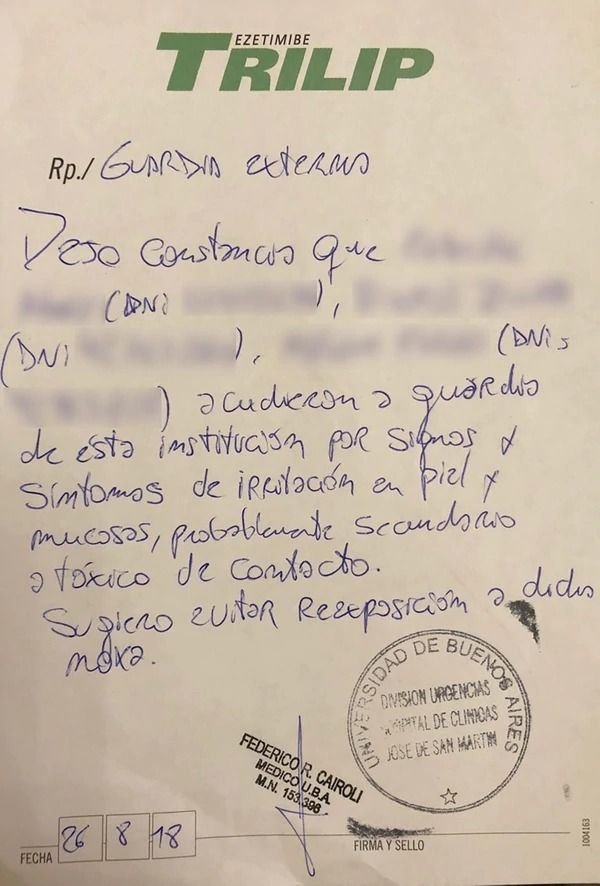 EZETIMIBE
TRILIP
Rp./ Guardia externa
Dejo constancia que
(DNI ),
(DNI ), (DNI
) acudieron a guardia
de esta institución por signos y
síntomas de irritación en piel y
mucosas, probablemente secundario
a tóxico de contacto.
Sugiero evitar reexposición a dicha
noxa.
UNIVERSIDAD DE BUENOS AIRES
DIVISION URGENCIAS
HOSPITAL DE CLINICAS
JOSE DE SAN MARTIN
FEDERICO R. CAIROLI
MEDICO U.B.A.
M.N. 153.396
FECHA 26 8 18
FIRMA Y SELLO
1004163